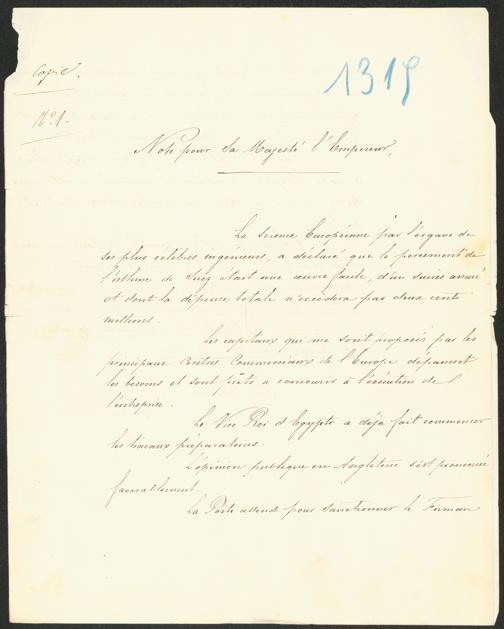 Copie.
1319
No 1.
Note pour Sa Majesté l'Empereur,
La science Européenne par l'organe de
ses plus célèbres ingénieurs, a déclaré que le percement de
l'isthme de Suez était une œuvre facile, d'un succès assuré
et dont la dépense totale n'excédera pas deux cents
millions.
Les capitaux qui me sont proposés par les
principaux Centres Commerciaux de l'Europe dépassent
les besoins et sont prêts a concourir à l'exécution de
l'entreprise.
Le Vice Roi d'Egypte a déjà fait commencer
les travaux préparatoires.
L'opinion publique en Angleterre s'est prononcée
favorablement.
La Porte attend pour sanctionner le Firman